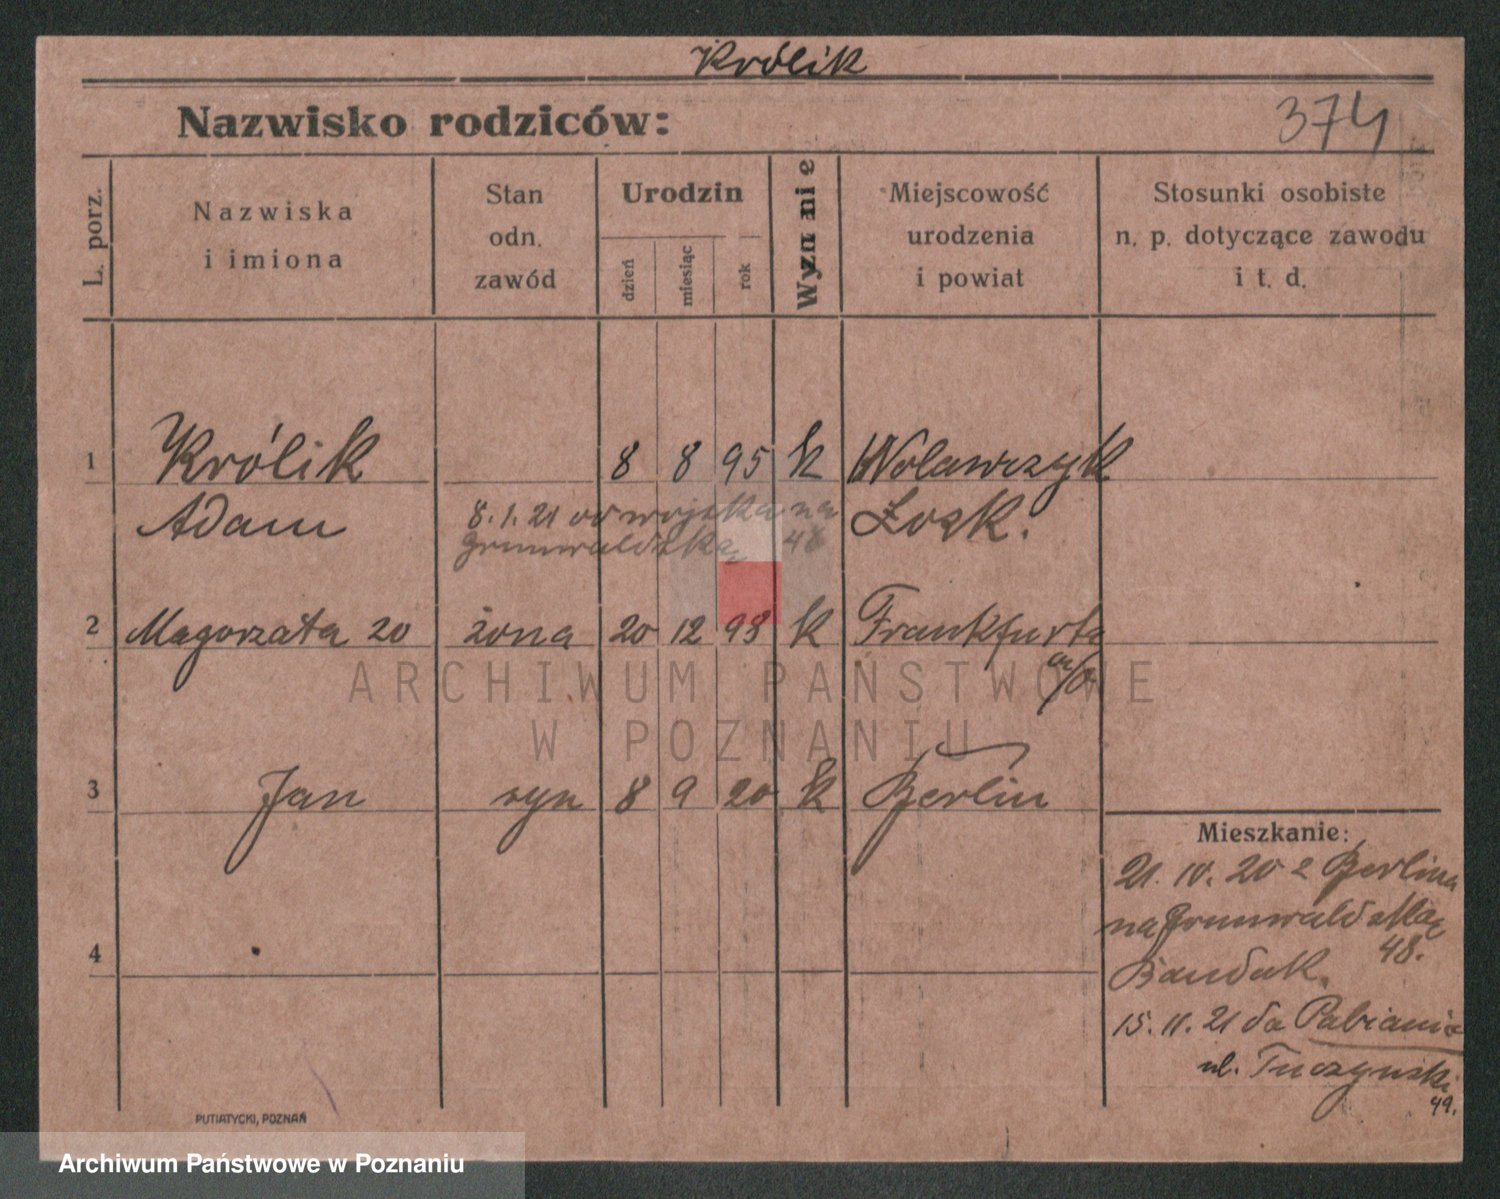 Królik
Nazwisko rodziców:
374
L. porz.
Nazwiska
i imiona
Stan
odn.
zawód
Urodzin
dzień
miesiąc
rok
Wyznanie
Miejscowość
urodzenia
i powiat
Stosunki osobiste
n. p. dotyczące zawodu
i t. d.
1 Królik 8 8 95 k Wolawrzyk
Adam Łosk.
8. 1. 21 od wojska na
Grunwaldzką 48
2 Magorzata 20 żona 20 12 98 k Frankfurt
a/O.
ARCHIWUM PAŃSTWOWE
W POZNANIU
3 Jan syn 8 9 20 k Berlin
Mieszkanie:
21. 10. 20 z Berlina
na Grunwaldzką
48.
4
15. 11. 21 do Pabianic
ul. Tuszyńska
49.
PUTIATYCKI, POZNAŃ
Archiwum Państwowe w Poznaniu